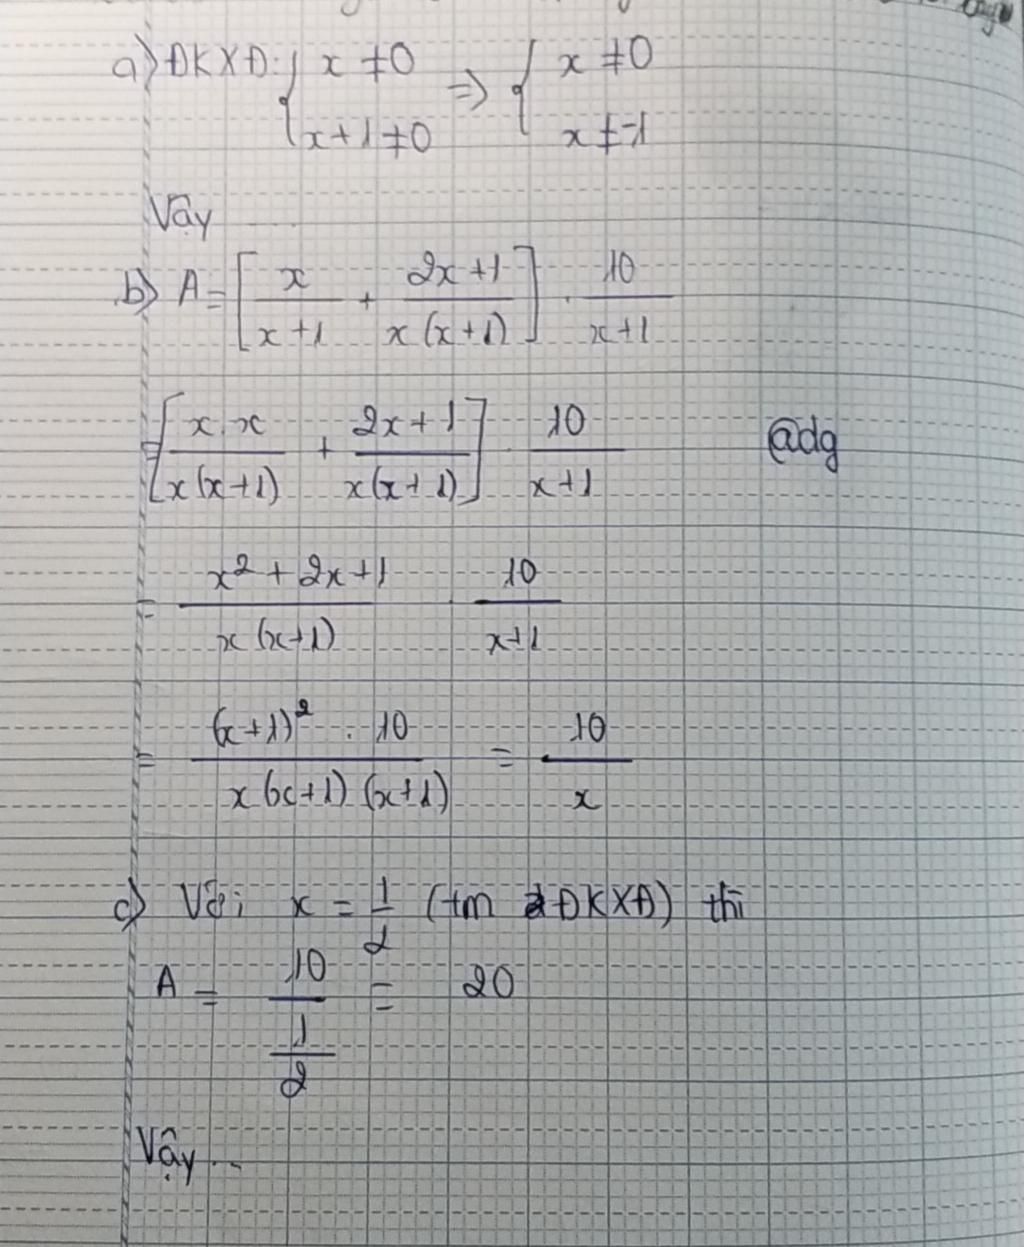 a) ĐKXĐ: { x ≠ 0 ⇒ { x ≠ 0
x + 1 ≠ 0 x ≠ -1
Vậy
b) A = [x/(x+1) + (2x+1)/(x(x+1))] . 10/(x+1)
= [x.x/(x(x+1)) + (2x+1)/(x(x+1))] . 10/(x+1) @dg
= (x² + 2x + 1)/(x(x+1)) . 10/(x+1)
= ((x+1)² . 10)/(x(x+1)(x+1)) = 10/x
c) Với x = 1/2 (tm ĐKXĐ) thì
A = 10/(1/2) = 20
Vậy...